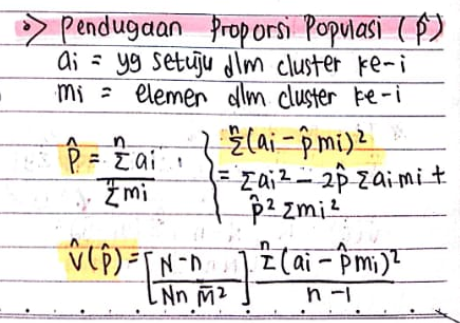 => Pendugaan Proporsi Populasi (p̂)
ai = yg setuju dlm cluster ke-i
mi = elemen dlm cluster ke-i
p̂ = Σⁿ ai / Σⁿ mi
Σⁿ(ai - p̂mi)²
= Σai² - 2p̂ Σaimi +
p̂² Σmi²
v̂(p̂) = [N-n / Nn M̄²] Σⁿ(ai - p̂mi)² / n-1